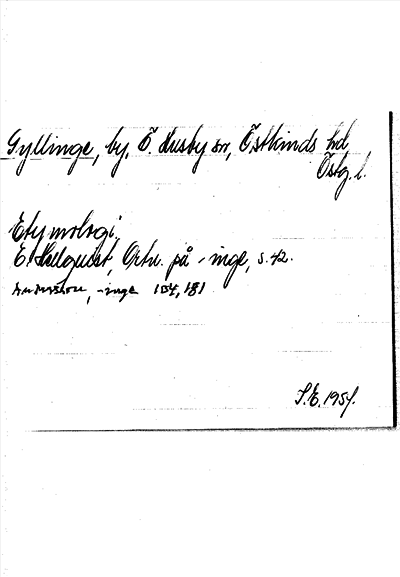 Gyllinge, by, Ö. Husby sn, Östkinds hd
Östg. l.
Etymologi.
E. Hellquist, Ortn. på -inge, s. 42.
Andersson, -inge 154, 181
S.E. 1954.